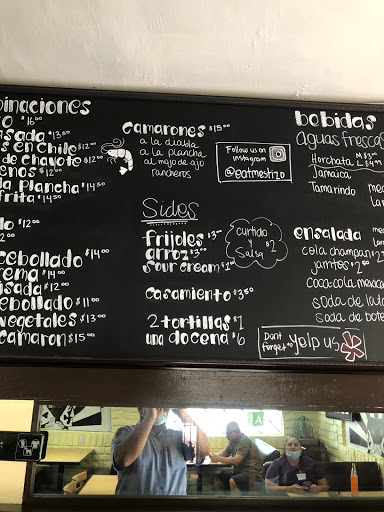 inaciones
$16.00
asada $13.50
s en Chile $12.00
de chayote $12.00
enos $12.00
la plancha $14.50
frita $14.50
lo $12
$12.00
cebollado $14.00
rema $14.00
isada $12.00
ebollado $11.00
vegetales $13.00
camaron $15.00
camarones $15.00
a la diabla
a la plancha
al mojo de ajo
rancheros
Follow us on
instagram
@eatmestizo
Sides
frijoles $3
arroz $3
sour cream $1
curtido
y
Salsa $2
casamiento $3.50
2 tortillas $1
una docena $6
bebidas
aguas frescas
Horchata M
L $4.99
Jamaica
Tamarindo
ensalada
cola champan
jarritos $2
coca-cola mexica
soda de lata
soda de bote
Dont
forget to yelp us
A